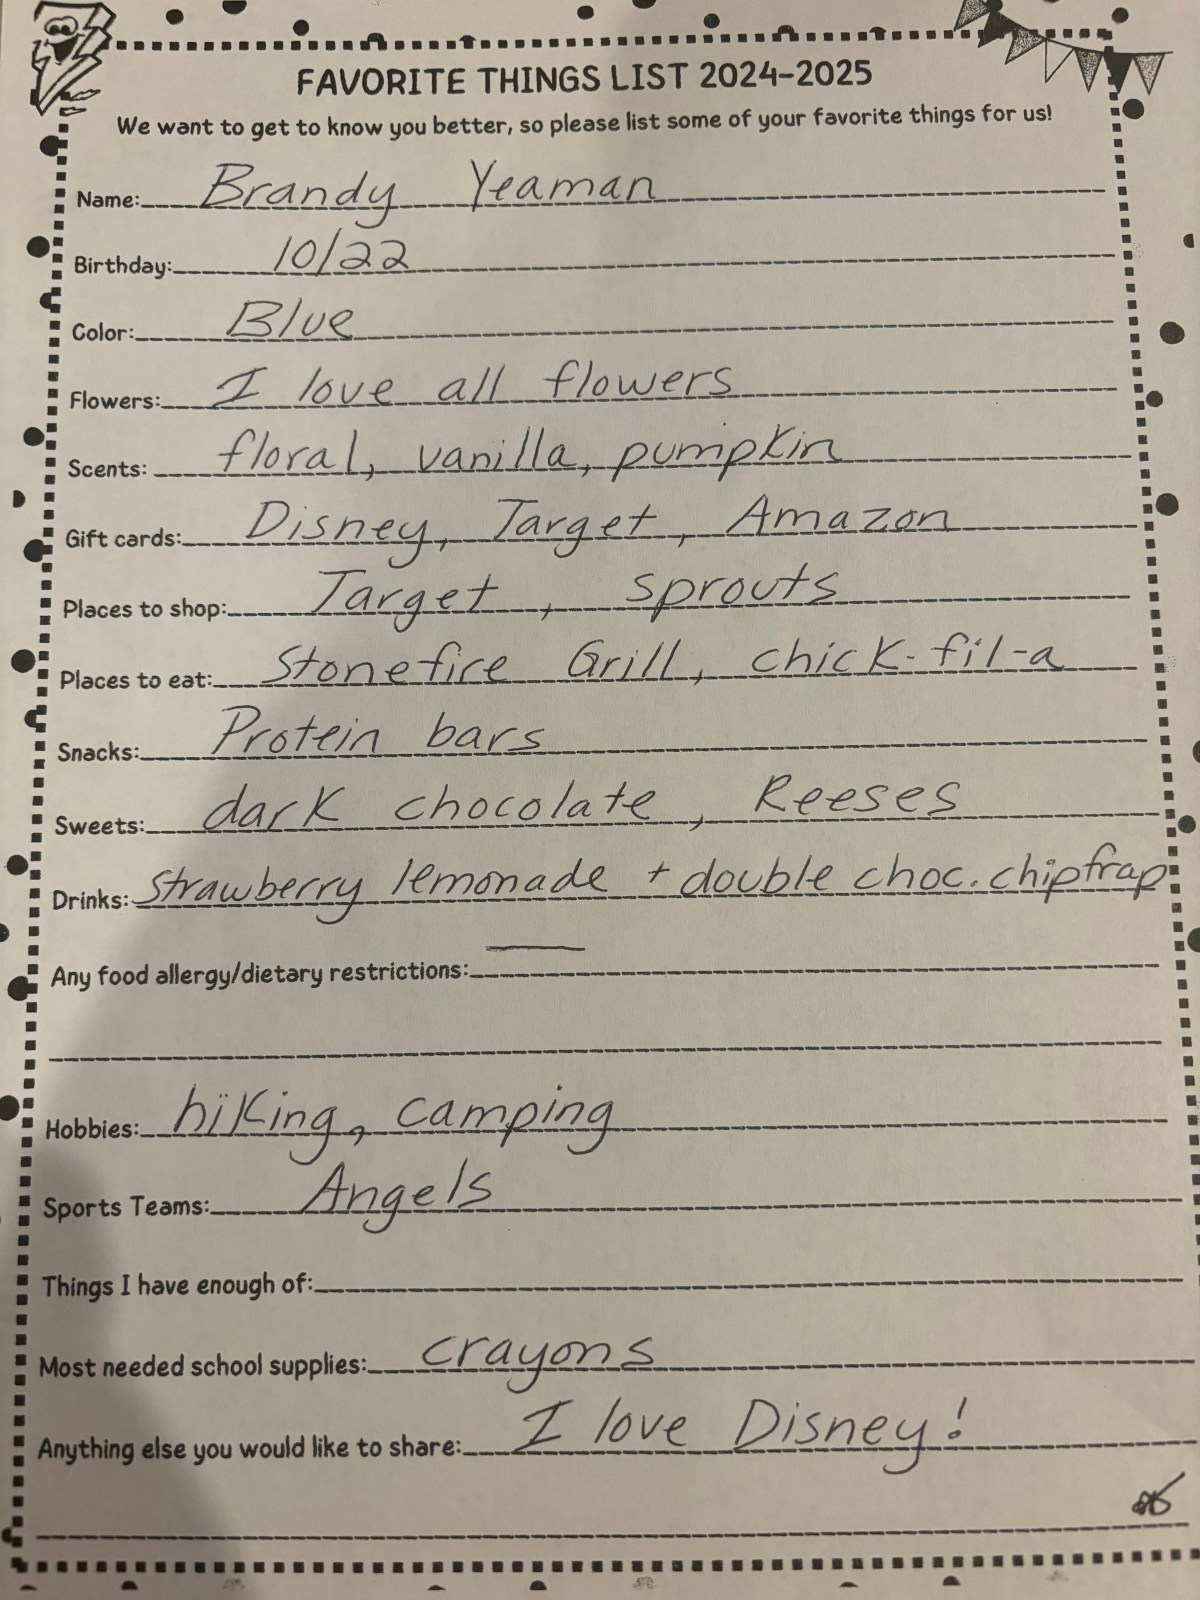 FAVORITE THINGS LIST 2024-2025
We want to get to know you better, so please list some of your favorite things for us!
Name: Brandy Yeaman
Birthday: 10/22
Color: Blue
Flowers: I love all flowers
Scents: floral, vanilla, pumpkin
Gift cards: Disney, Target, Amazon
Places to shop: Target, sprouts
Places to eat: Stonefire Grill, chick-fil-a
Snacks: Protein bars
Sweets: dark chocolate, Reeses
Drinks: Strawberry lemonade + double choc. chip frap
Any food allergy/dietary restrictions: —
Hobbies: hiking, camping
Sports Teams: Angels
Things I have enough of:
Most needed school supplies: crayons
Anything else you would like to share: I love Disney!